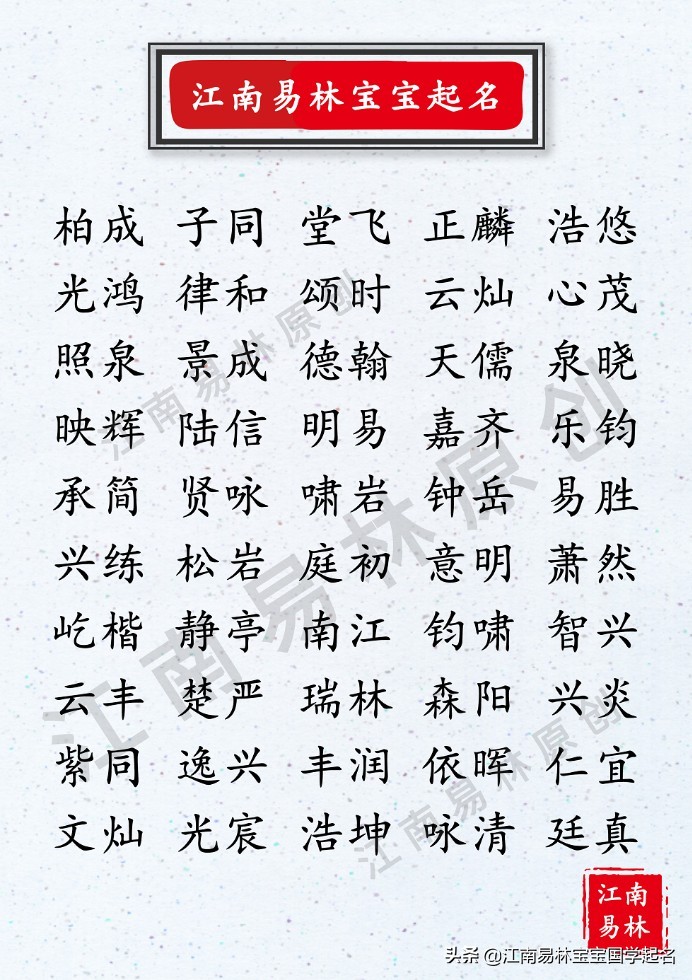 江南易林宝宝起名
柏成 子同 堂飞 正麟 浩悠
光鸿 律和 颂时 云灿 心茂
照泉 景成 德翰 天儒 泉晓
映辉 陆信 明易 嘉齐 乐钧
承简 贤咏 啸岩 钟岳 易胜
兴练 松岩 庭初 意明 萧然
屹楷 静亭 南江 钧啸 智兴
云丰 楚严 瑞林 森阳 兴炎
紫同 逸兴 丰润 依晖 仁宜
文灿 光宸 浩坤 咏清 廷真
江南易林原创
江南易林原创
江南易林原创
江南
易林
头条 @江南易林宝宝国学起名